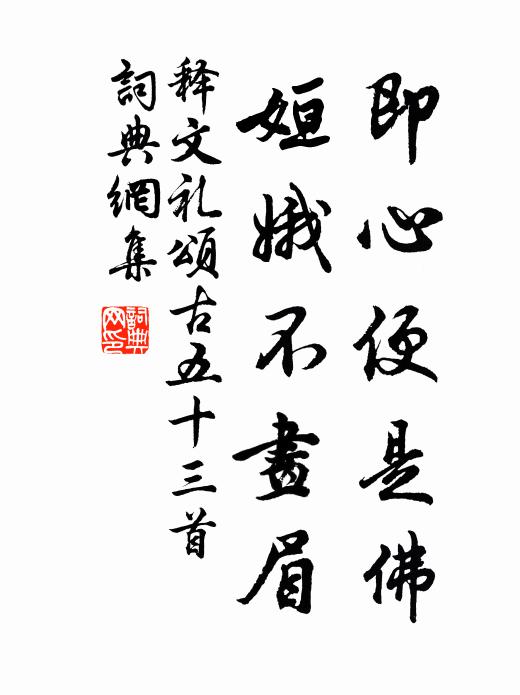 即心便是佛
姮娥不畫眉
释文礼頌古五十三首
詞典網集
詞典网印